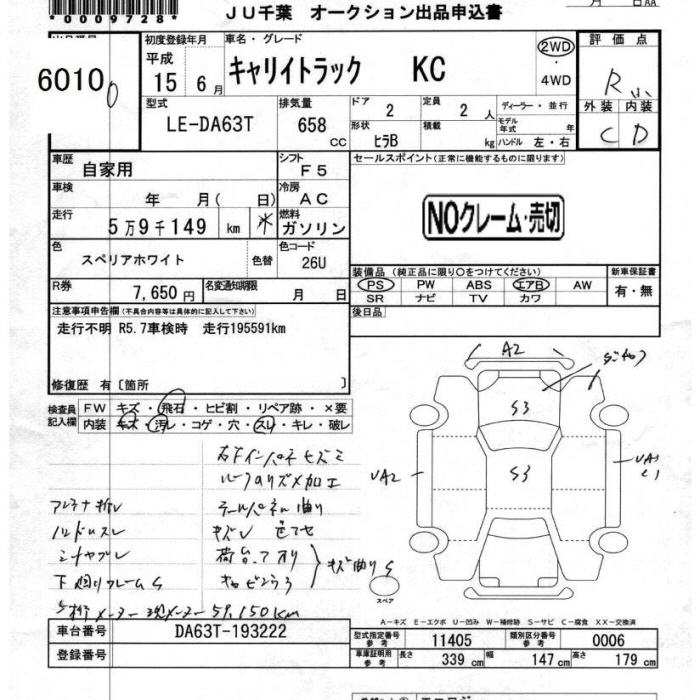 *0009728*
JU千葉 オークション出品申込書
月 日AA
6010
初度登録年月 車名・グレード
平成
15年 6月 キャリイトラック KC
2WD
・
4WD
評価点
R
外装 内装
C D
型式 LE-DA63T
排気量 658 CC
ドア 2 定員 2人
ディーラー・並行
モデル年式 年
形状 ヒラB 積載 kg ハンドル 左・右
車歴 自家用
シフト F5
セールスポイント(正常に機能するものに限ります)
車検 年 月( 日)
冷房 AC
走行 5万9千149 km ※
燃料 ガソリン
NOクレーム・売切
色 スペリアホワイト 色替
色コード 26U
装備品(純正品に限り○をつけてください) 新車保証書
PS PW ABS エアB AW 有・無
SR ナビ TV カワ
R券 7,650円 名変通知期限 月 日
後日品
注意事項申告欄(不具合内容等は具体的に記入して下さい)
走行不明 R5.7車検時 走行195591km
修復歴 有〔箇所 〕
検査員記入欄
FW キズ・飛石・ヒビ割・リペア跡・×要
内装 キズ・汚レ・コゲ・穴・スレ・キレ・破レ
A2
S3
S3
UA2
アンテナ折レ
ハンドルスレ
下廻りフレームS
ルーフ
テールパネル曲り
キズ曲り S
スペア
A-キズ E-エクボ U-凹み W-補修跡 S-サビ C-腐食 XX-交換済
車台番号 DA63T-193222
型式指定番号 参考 11405 類別区分番号 参考 0006
登録番号
車庫証明用 参考 長さ 339 cm 幅 147 cm 高さ 179 cm